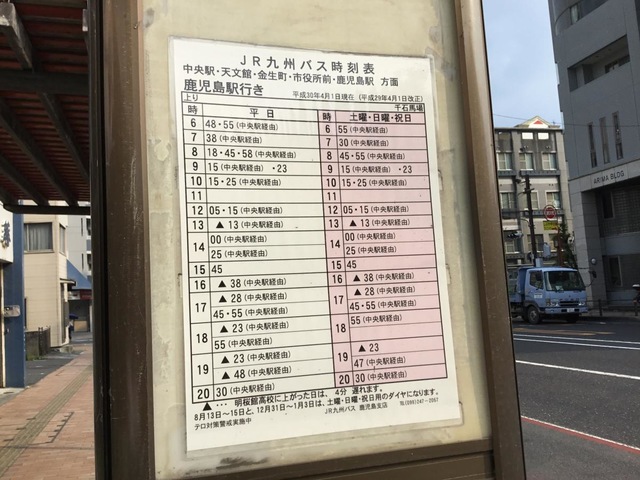 JR九州バス時刻表
中央駅・天文館・金生町・市役所前・鹿児島駅 方面
鹿児島駅行き 平成30年4月1日現在（平成29年4月1日改正）
上り 千石馬場
時 平日 時 土曜・日曜・祝日
6 48・55（中央駅経由） 6 55（中央駅経由）
7 38（中央駅経由） 7 30（中央駅経由）
8 18・45・58（中央駅経由） 8 45・55（中央駅経由）
9 15（中央駅経由）・23 9 15（中央駅経由）・23
10 15・25（中央駅経由） 10 15・25（中央駅経由）
11 11
12 05・15（中央駅経由） 12 05・15（中央駅経由）
13 ▲13（中央駅経由） 13 ▲13（中央駅経由）
14 00（中央駅経由） 14 00（中央駅経由）
25（中央駅経由） 25（中央駅経由）
15 45 15 45
16 ▲38（中央駅経由） 16 ▲38（中央駅経由）
17 ▲28（中央駅経由） 17 ▲28（中央駅経由）
45・55（中央駅経由） 45・55（中央駅経由）
18 ▲23（中央駅経由） 18 55（中央駅経由）
55（中央駅経由）
19 ▲23（中央駅経由） 19 ▲23
▲48（中央駅経由） 47（中央駅経由）
20 30（中央駅経由） 20 30（中央駅経由）
▲… 明桜館高校に上がった日は、4分 遅れます。
8月13日～15日と、12月31日～1月3日は、土曜・日曜・祝日用のダイヤになります。
テロ対策警戒実施中 JR九州バス 鹿児島支店 TEL(099)247-2057
ARIMA BLDG